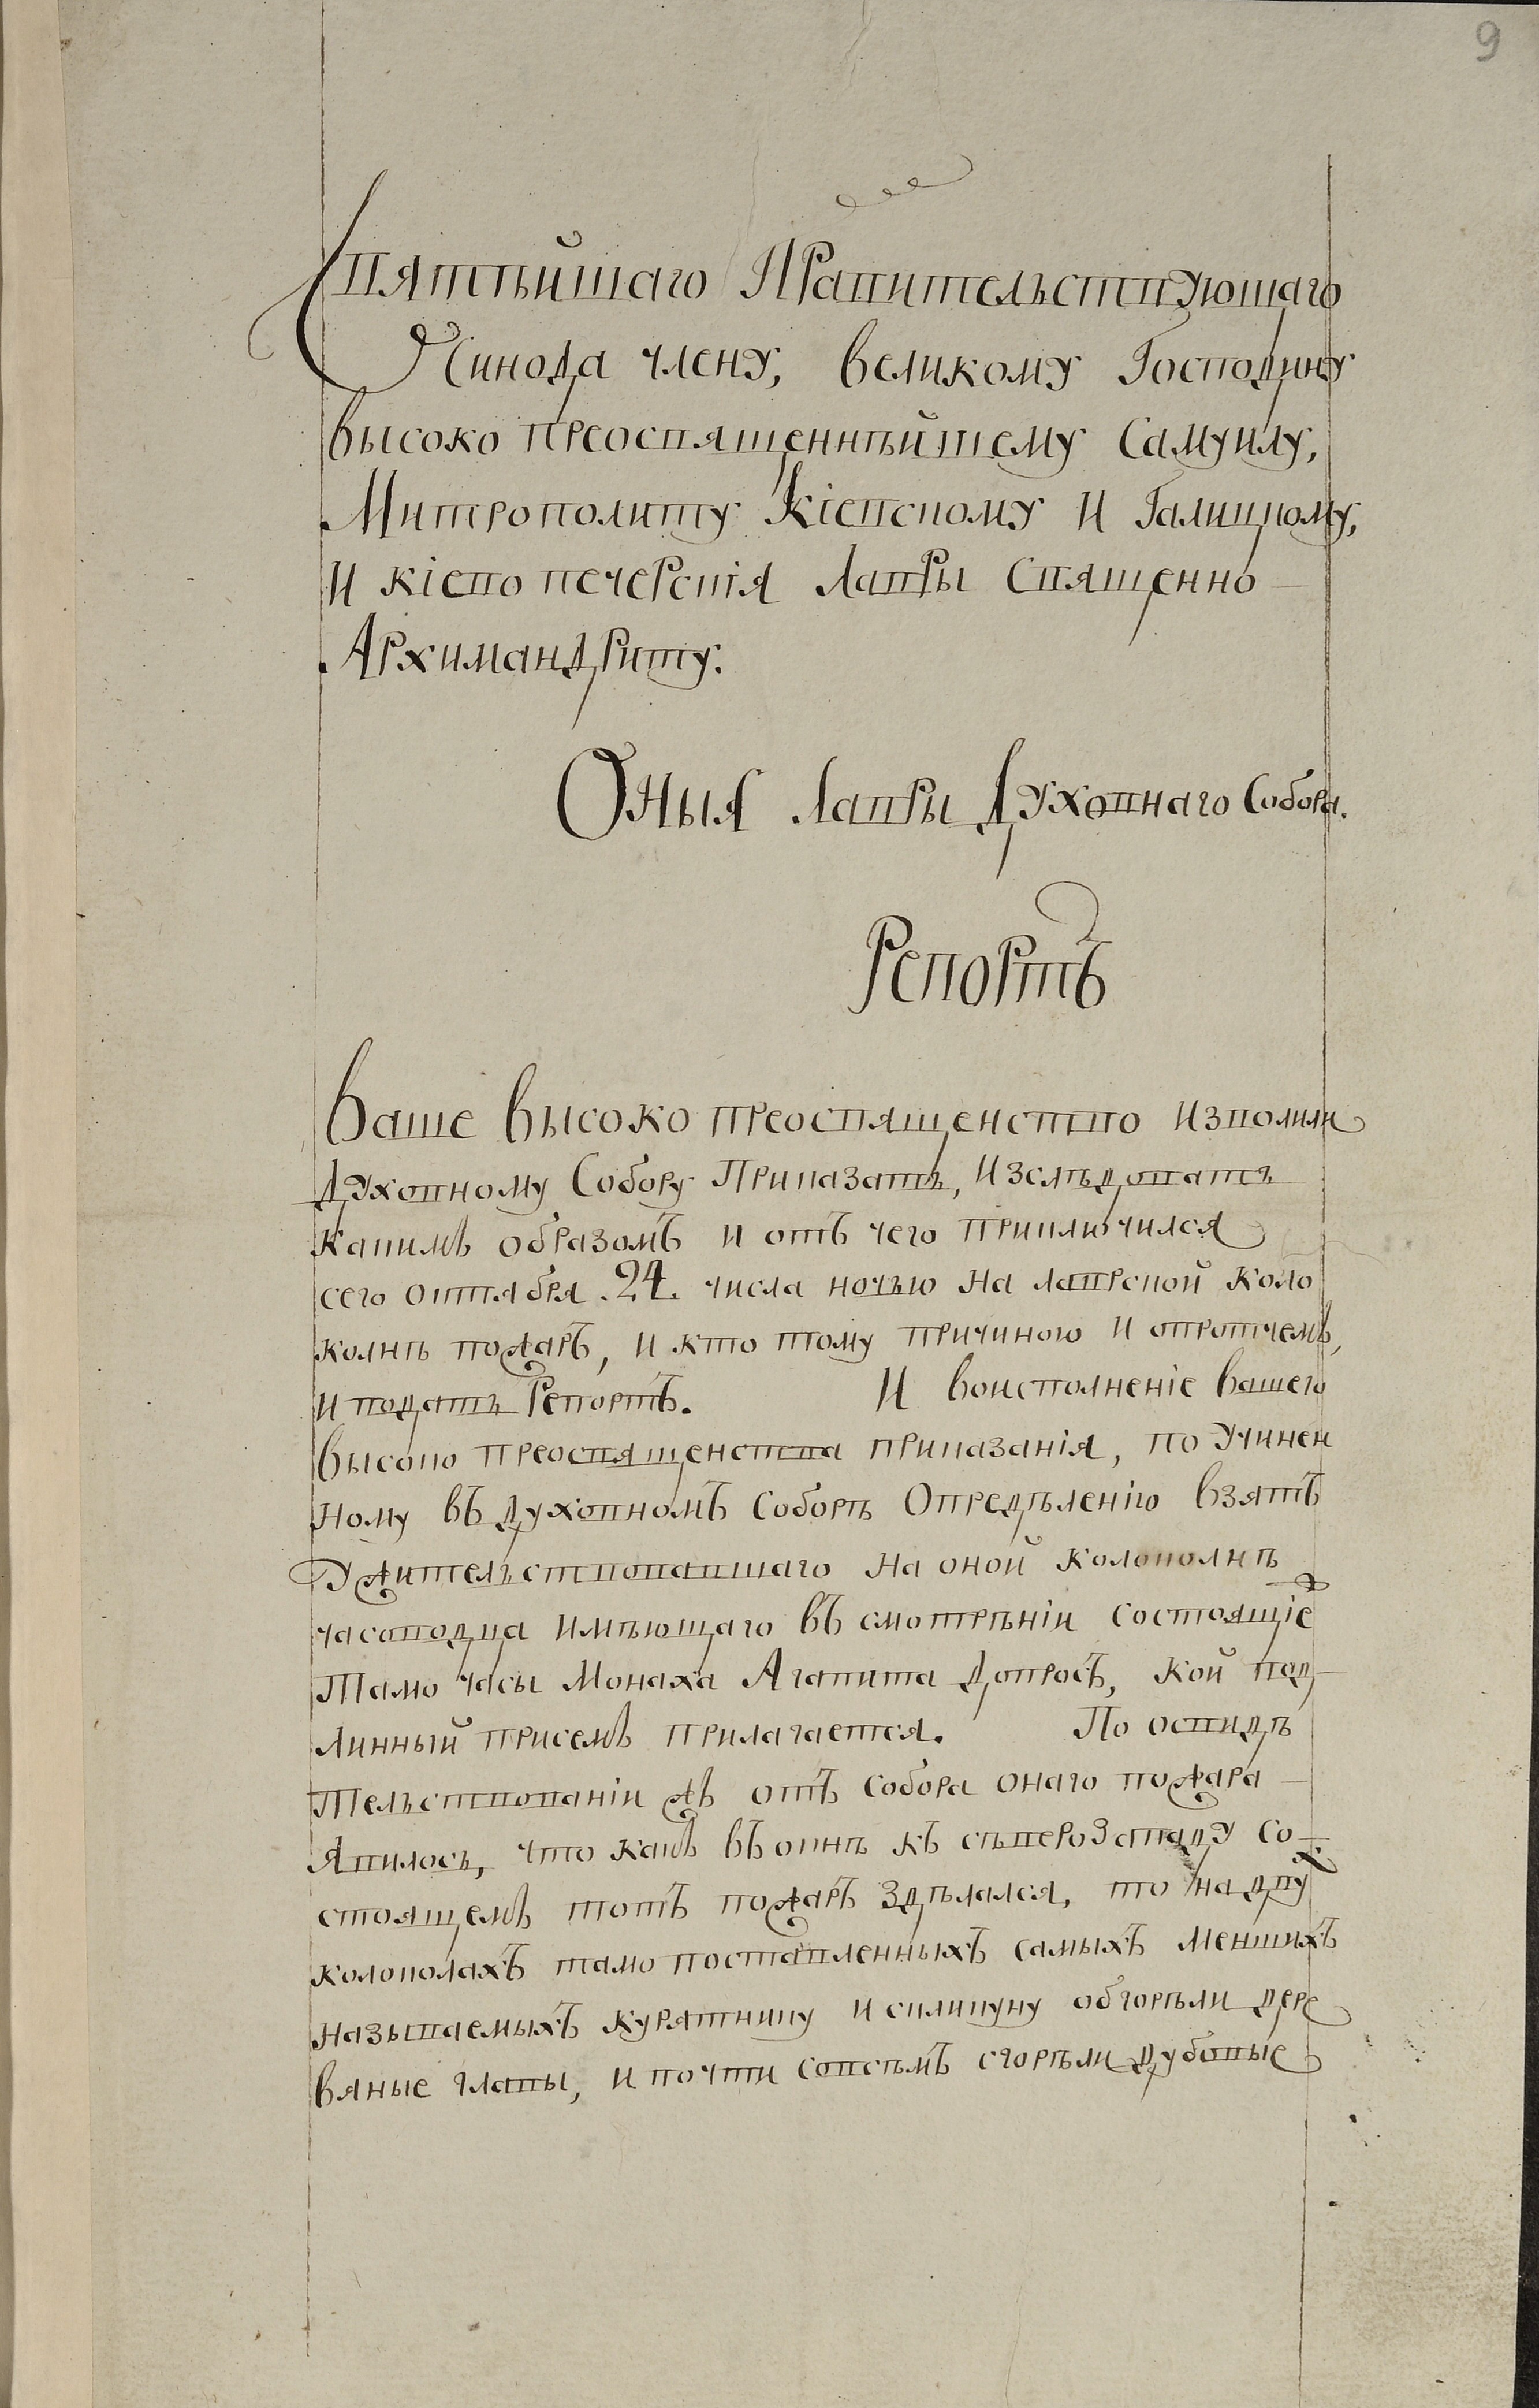 9
Святѣйшаго Правительствующаго
Сѵнода члену, великому Господину
высоко преосвященнѣйшему Самуилу,
Митрополиту Кіевскому и Галицкому,
и кіево печерскія Лавры Священно
Архимандриту.
Оныя Лавры Духовнаго Собора.
Репортъ
Ваше высоко преосвященство изволили
Духовному Собору Приказать, изслѣдовать
какимъ образомъ и отъ чего приключился
сего октября .24. числа ночью на лаврской коло
колнѣ пожаръ, и кто тому причиною и опротчемъ,
и подать Репортъ. И воисполненіе вашего
высоко преосвященства приказанія, по учинен
ному въ духовномъ Соборѣ Опредѣленію взятъ
у жительствовавшаго на оной колокольнѣ
часоводца имѣющаго въ смотрѣніи состоящіе
тамо часы Монаха Агапита допросъ, кой под
линный присемъ прилагается. По освидѣ
тельствованіи жъ отъ Собора онаго пожара
явилось, что какъ въ окнѣ къ сѣверозападу со
стоящемъ тотъ пожаръ здѣлался, то на двухъ
колоколахъ тамо поставленныхъ самыхъ меншихъ
называемыхъ курятнику и силикуну обгорѣли дере
вяные главы, и почти совсѣмъ сгорѣли дубовые